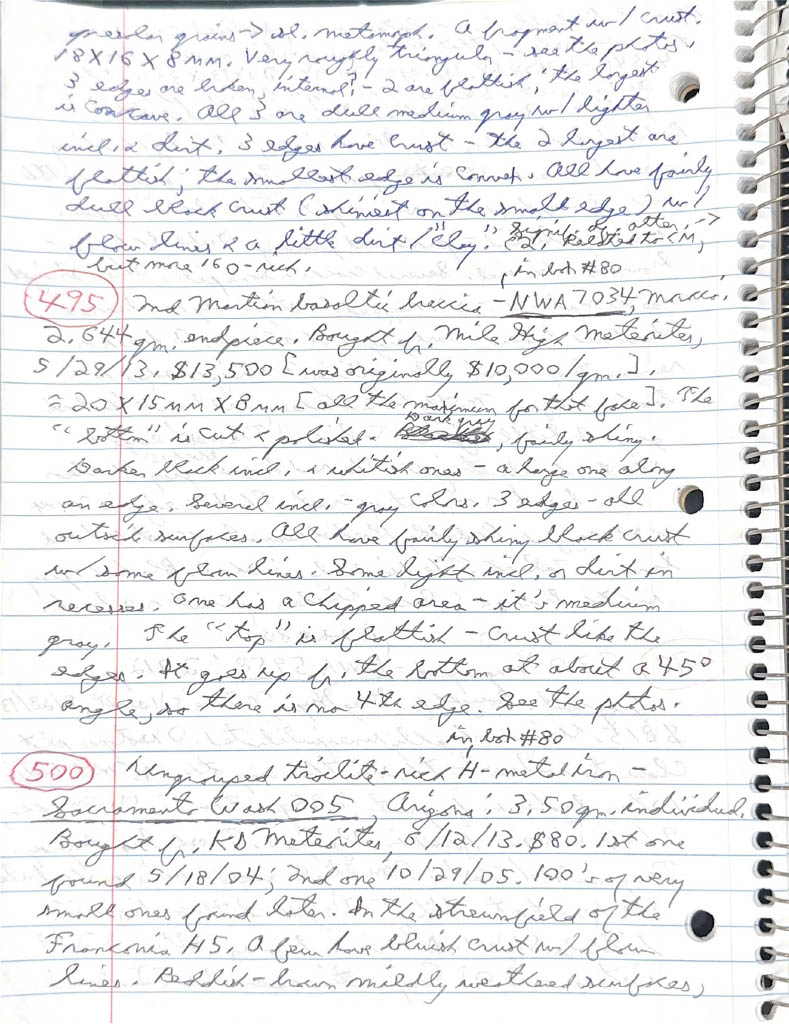 granular grains → sl. metamorph. A fragment w/ crust.
18 X 16 X 8 mm. Very roughly triangular - see the photos.
3 edges are broken, internal? - 2 are flattish; the largest
is concave. All 3 are dull medium gray w/ lighter
incl. & dirt. 3 edges have crust - the 2 largest are
flattish; the smallest edge is convex. All have fairly
dull black crust (shiniest on the small edge) w/
flow lines & a little dirt/"clay." Signif. aq. alter. →
C2, Related to CM,
but more 16O-rich.
in box #80
495 2nd Martian basaltic breccia - NWA 7034, Morocco.
2.644 gm. endpiece. Bought fr. Mile High Meteorites,
5/29/13. $13,500 [was originally $10,000/gm.].
≈ 20 X 15 mm X 8 mm [all the maximum for that face]. The
"bottom" is cut & polished. Dark gray, fairly shiny.
Darker black incl. & whitish ones - a large one along
an edge. Several incl. - gray colors. 3 edges - all
outside surfaces. All have fairly shiny black crust
w/ some flow lines. Some light incl. or dirt in
recesses. One has a chipped area - it's medium
gray. The "top" is flattish - crust like the
edges. It goes up fr. the bottom at about a 45°
angle, so there is no 4th edge. See the photos.
in box #80
500 Ungrouped troilite-rich H-metal iron -
Sacramento Wash 005, Arizona; 3.50 gm. individual.
Bought fr. KD Meteorites, 6/12/13. $80. 1st one
found 5/18/04; 2nd one 10/29/05. 100's of very
small ones found later. In the strewnfield of the
Franconia H5. A few have bluish crust w/ flow
lines. Reddish-brown mildly weathered surfaces,